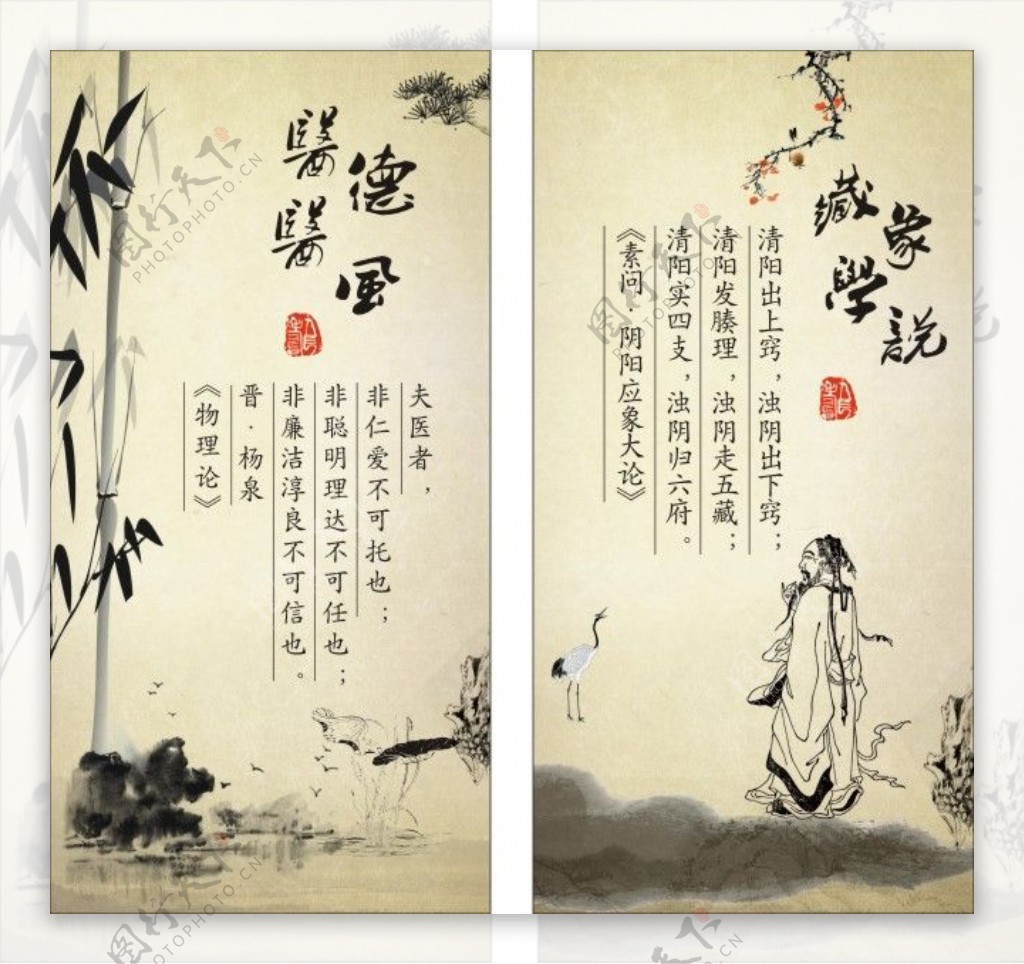 醫德
醫風
夫医者，
非仁爱不可托也；
非聪明理达不可任也；
非廉洁淳良不可信也。
晋·杨泉
《物理论》
藏象
學說
清阳出上窍，浊阴出下窍；
清阳发腠理，浊阴走五藏；
清阳实四支，浊阴归六府。
《素问·阴阳应象大论》
图行天下
PHOTOPHOTO.CN